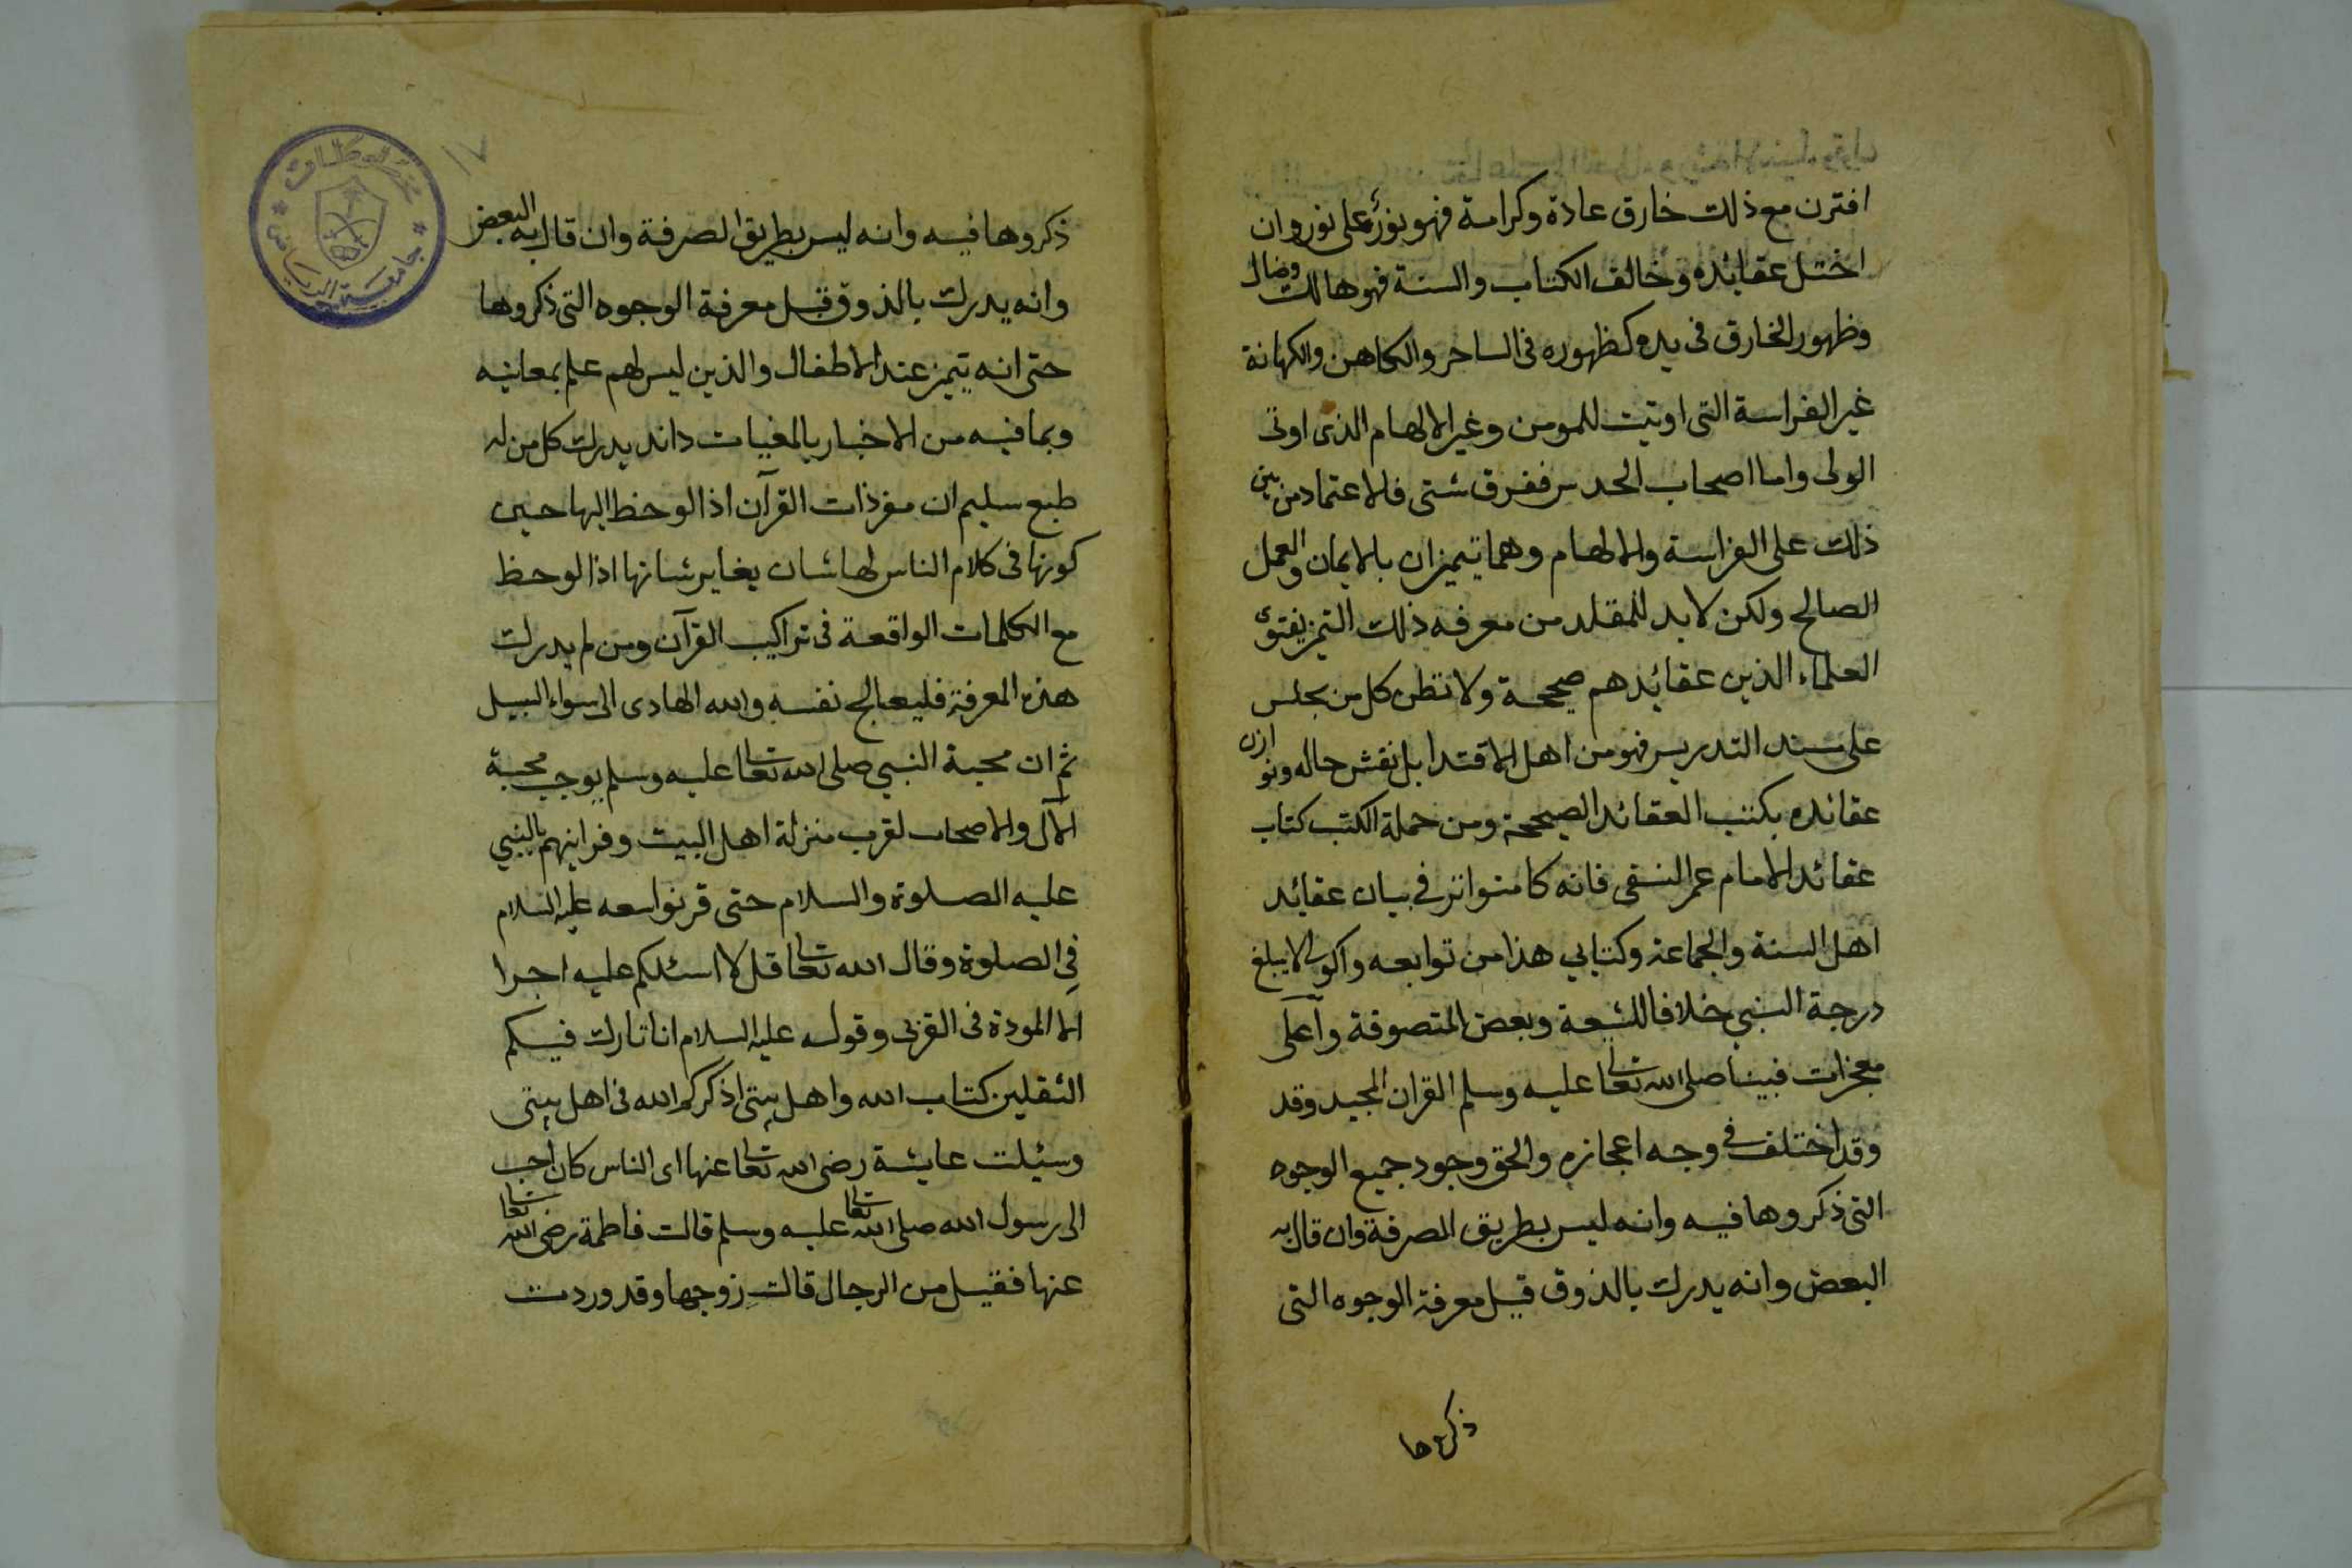 اقترن مع ذلك خارق عادة وكرامة فهو نور على نور وان
اختل عقائده وخالف الكتاب والسنة فهو هالك وضال
وظهور الخارق فى يده كظهوره فى الساحر والكاهن والكهانة
غير الفراسة التى اوتيت للمومن وغير الالهام الذى اوتى
الولى واما اصحاب الحدس ففرق شتى فالاعتماد من بين
ذلك على الفراسة والالهام وهما تيميزان بالايمان والعمل
الصالح ولكن لابد للمقلد من معرفه ذلك التميز بفتوى
العلماء الذين عقائدهم صحيحة ولا تظن كل من يجلس
على مسند التدريس فهو من اهل الاقتدا بل نقش حاله ونوازن
عقائده بكتب العقائد الصحيحة ومن جملة الكتب كتاب
عقائد الامام عمر النسفى فانه كامتواتر في بيان عقايد
اهل السنة والجماعة وكتابي هذا من توابعه والولى لا يبلغ
درجة النبي خلافا للشيعة وبعض المتصوفة واعلى
معجزات نبينا صلى الله تعالى عليه وسلم القران المجيد وقد
وقد اختلف في وجه اعجازه والحق وجود جميع الوجوه
التى ذكروها فيه وانه ليس بطريق الصرفة وان قال به
البعض وانه يدرك بالذوق قبل معرفة الوجوه التى
ذكروها
١٧
ذكروها فيه وانه ليس بطريق الصرفة وان قال به البعض
وانه يدرك بالذوق قبل معرفة الوجوه التى ذكروها
حتى انه يتميز عند الاطفال والذين ليس لهم علم بمعانيه
وبما فيه من الاخبار بالمغيبات وانه يدرك كل من له
طبع سليم ان مفردات القرآن اذا لوحظ اليها حين
كونها فى كلام الناس لها شان يغاير شانها اذا لوحظ
مع الكلمات الواقعة فى تراكيب القرآن ومن لم يدرك
هذه المعرفة فليعالج نفسه والله الهادى الى سواء السبيل
ثم ان محبة النبي صلى الله تعالى عليه وسلم يوجب محبة
الآل والاصحاب لقرب منزلة اهل البيت وقرابتهم بالنبي
عليه الصلوة والسلام حتى قرنوا معه عليه السلام
في الصلوة وقال الله تعالى قل لا اسئلكم عليه اجرا
الا المودة فى القربى وقوله عليه السلام انا تارك فيكم
الثقلين كتاب الله واهل بيتى اذكركم الله فى اهل بيتى
وسئلت عايشة رضى الله تعالى عنها اى الناس كان احب
الى رسول الله صلى الله تعالى عليه وسلم قالت فاطمة رضى الله تعالى
عنها فقيل من الرجال قالت زوجها وقد وردت
جامعة الرياض